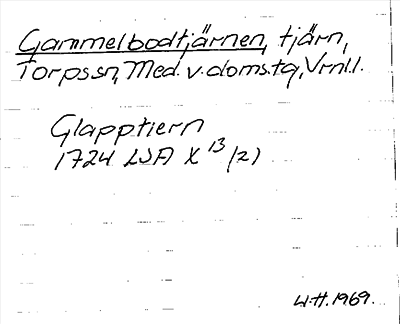 Gammelbodtjärnen, tjärn,
Torps sn, Med. v. doms.tg, Vrnl.l.
Glapptiern
1724 LSA X 13 (2)
W.H. 1969.